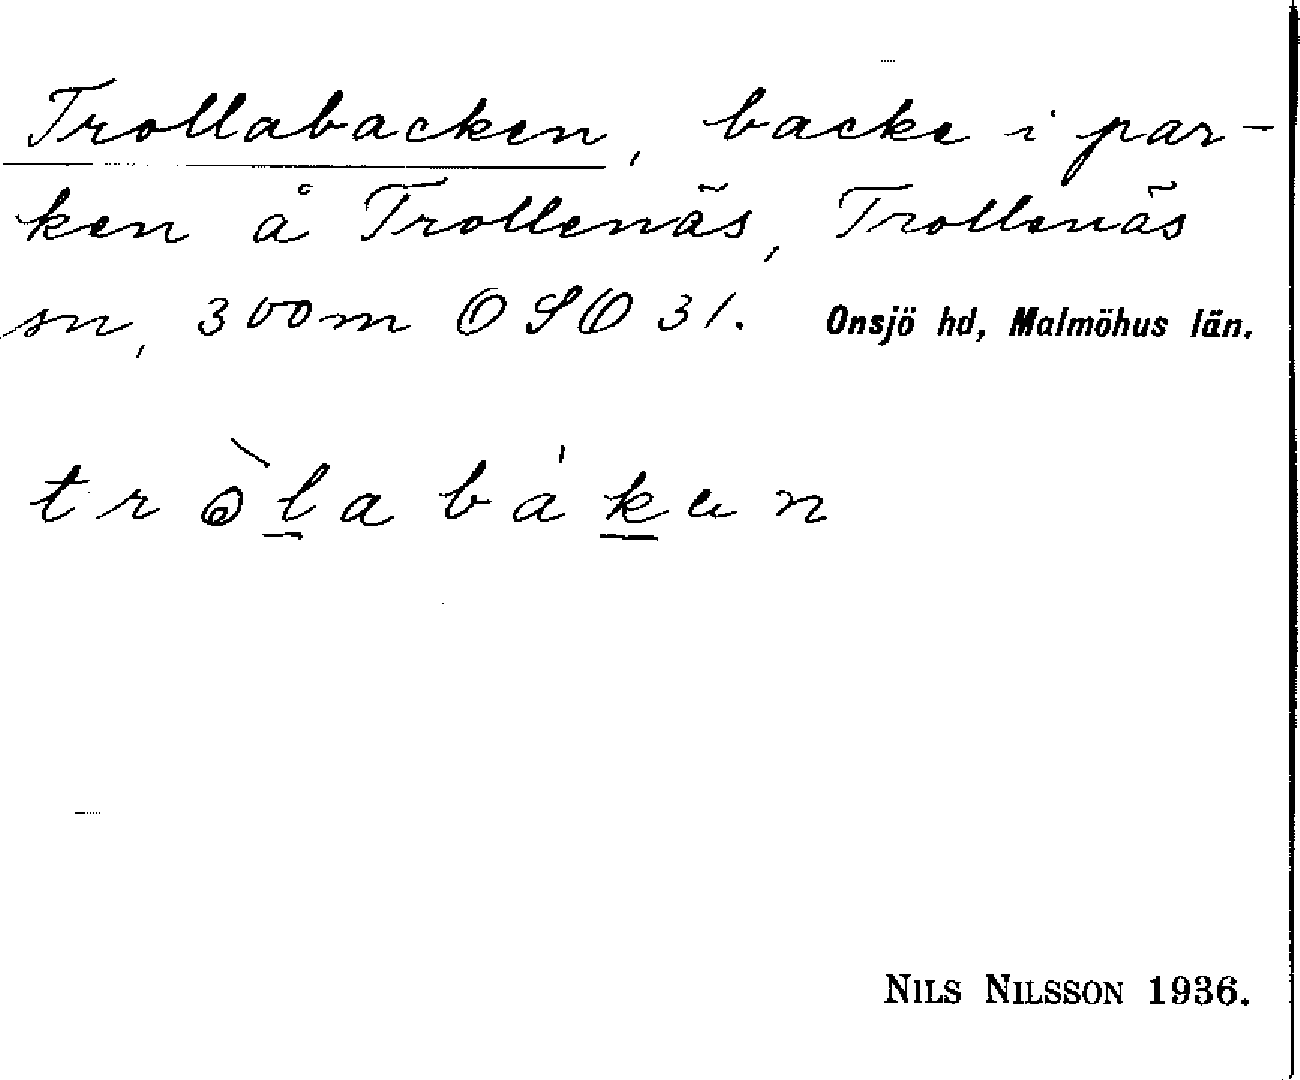 Trollabacken, backe i par-
ken å Trollenäs, Trollenäs
sn, 300m OSO 31. Onsjö hd, Malmöhus län.
tròlabákan
NILS NILSSON 1936.